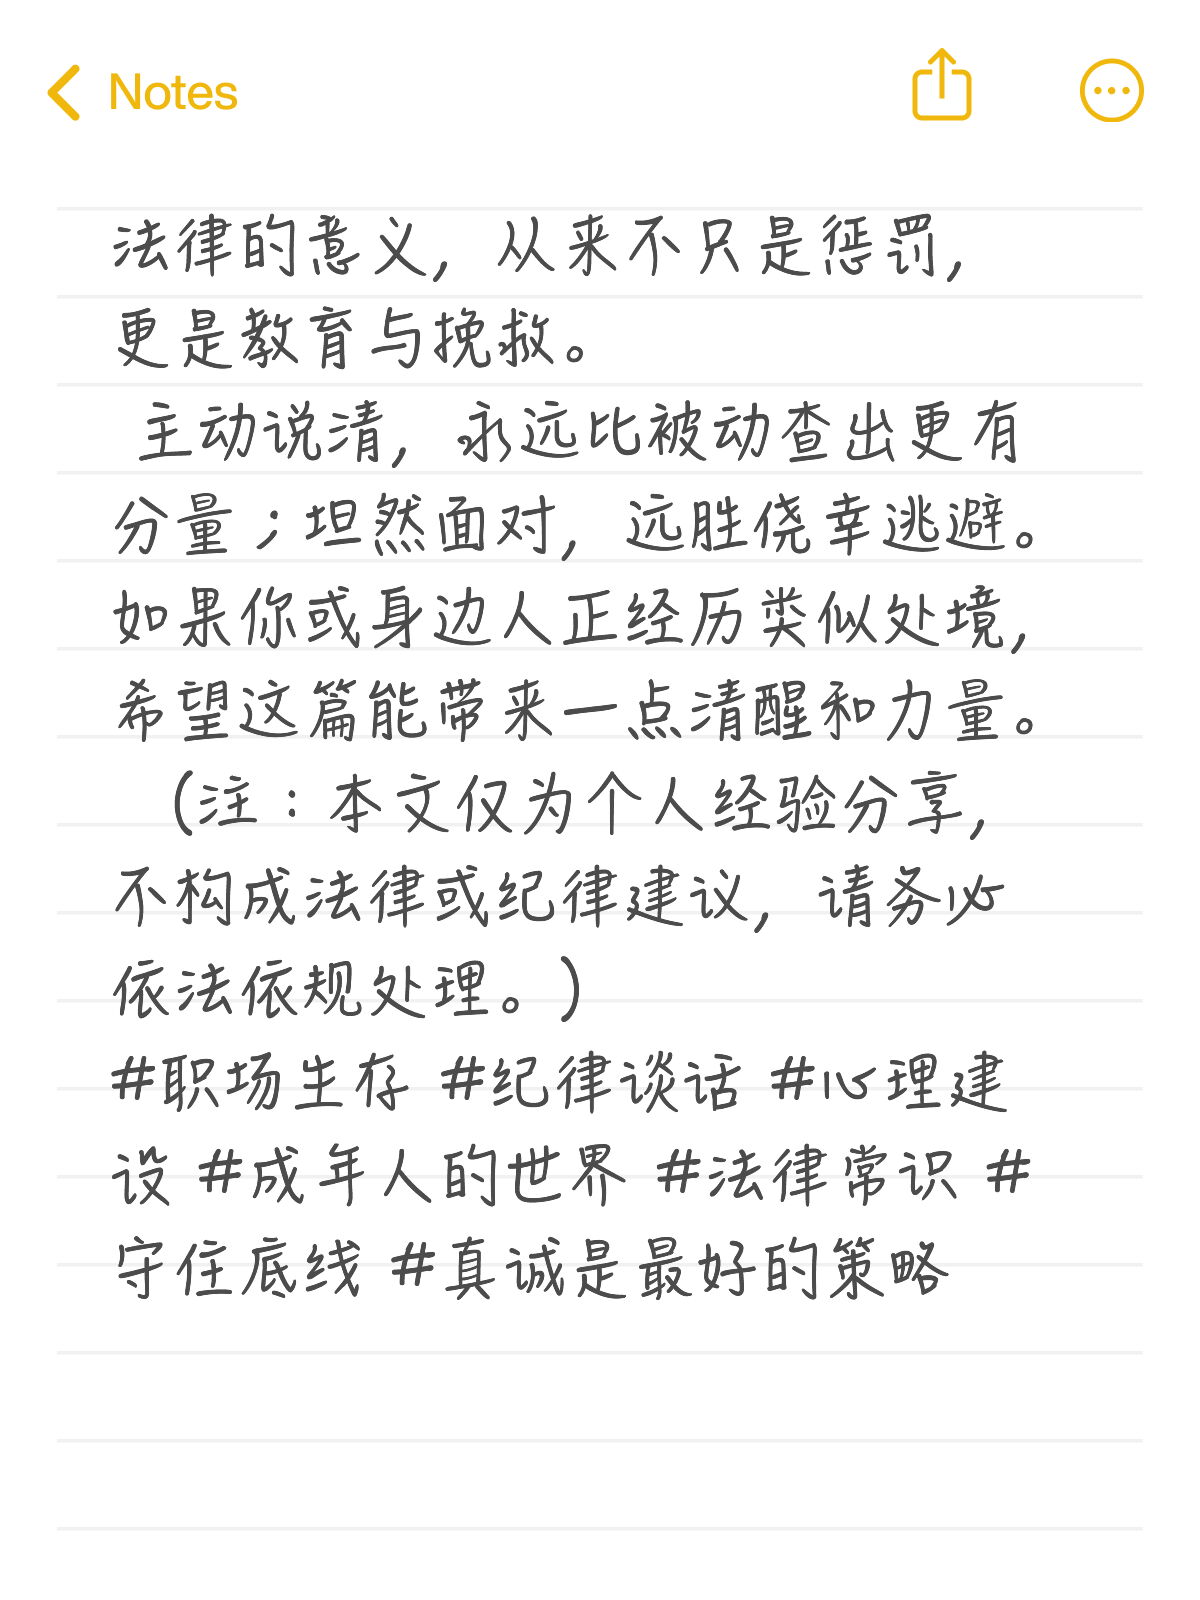 Notes
法律的意义，从来不只是惩罚，
更是教育与挽救。
主动说清，永远比被动查出更有
分量；坦然面对，远胜侥幸逃避。
如果你或身边人正经历类似处境，
希望这篇能带来一点清醒和力量。
（注：本文仅为个人经验分享，
不构成法律或纪律建议，请务必
依法依规处理。）
#职场生存 #纪律谈话 #心理建
设 #成年人的世界 #法律常识 #
守住底线 #真诚是最好的策略